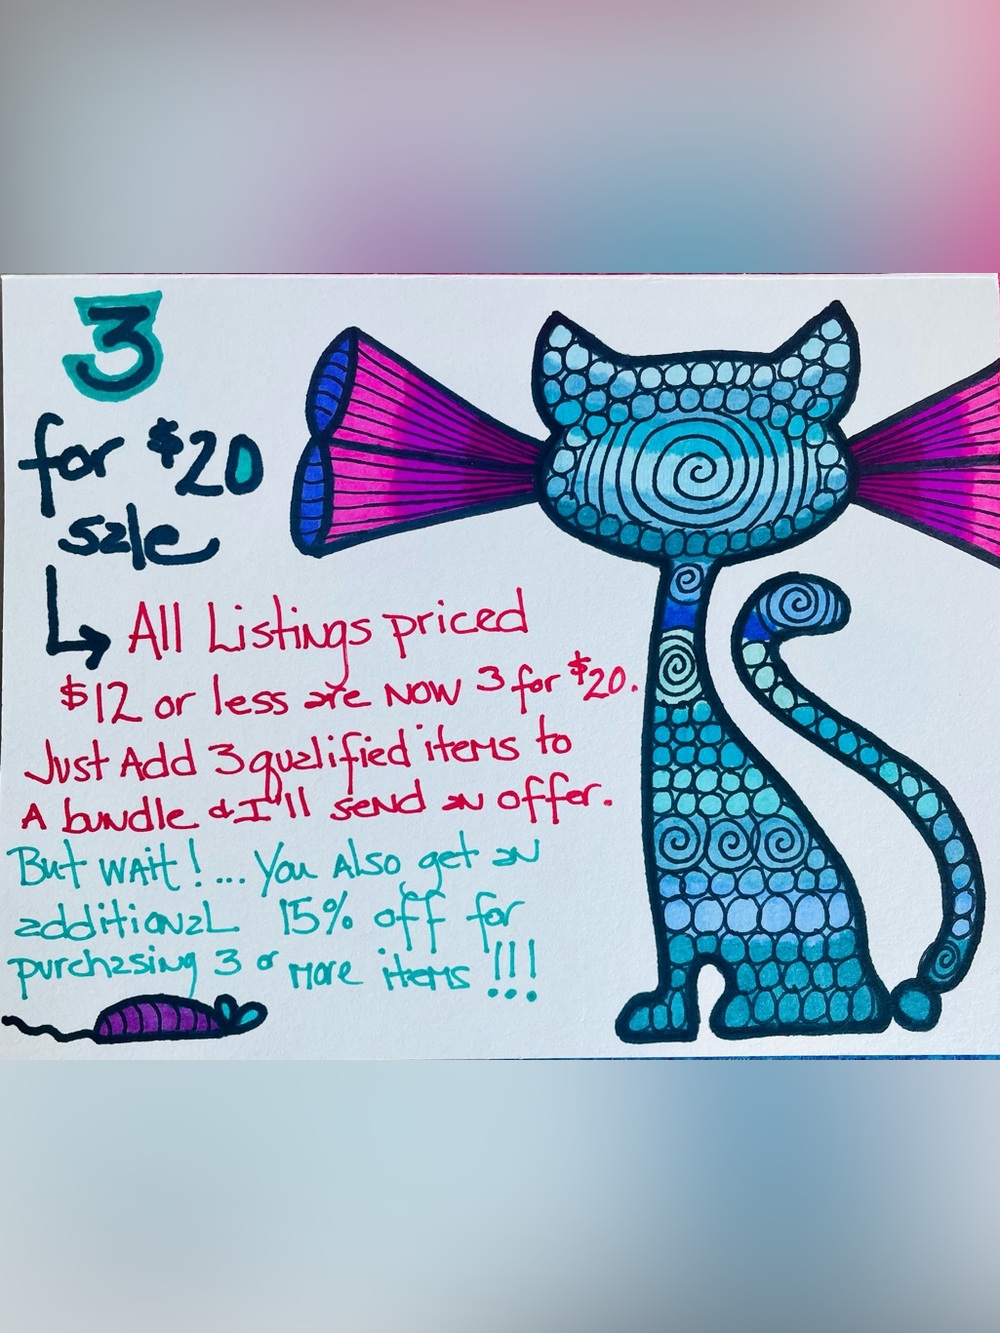 3
for $20
sale
All Listings priced
$12 or less are now 3 for $20.
Just Add 3 qualified items to
A bundle & I'll send an offer.
But wait!... You Also get an
additional 15% off for
purchasing 3 or more items!!!